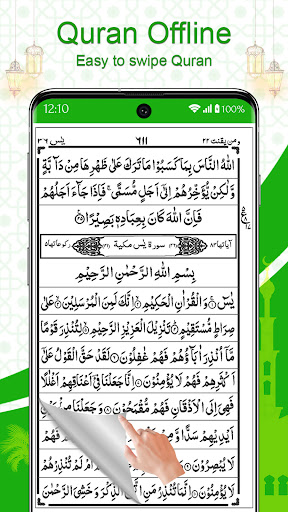 Quran Offline
Easy to swipe Quran
12:10
100%
یٰسٓ ٣٦
٦١١
ومن یقنت ٢٢
اللّٰهُ النَّاسَ بِمَا كَسَبُوْا مَا تَرَكَ عَلٰى ظَهْرِهَا مِنْ دَآبَّةٍ
وَّلٰكِنْ یُّؤَخِّرُهُمْ اِلٰۤى اَجَلٍ مُّسَمًّى ۚ فَاِذَا جَآءَ اَجَلُهُمْ
فَاِنَّ اللّٰهَ كَانَ بِعِبَادِهٖ بَصِیْرًا
اٰیاتها ٨٣ سورة یٰسٓ مكیة ركوعاتها ٥
بِسْمِ اللّٰهِ الرَّحْمٰنِ الرَّحِیْمِ
یٰسٓ وَالْقُرْاٰنِ الْحَكِیْمِ اِنَّكَ لَمِنَ الْمُرْسَلِیْنَ عَلٰى
صِرَاطٍ مُّسْتَقِیْمٍ تَنْزِیْلَ الْعَزِیْزِ الرَّحِیْمِ لِتُنْذِرَ قَوْمًا
مَّاۤ اُنْذِرَ اٰبَآؤُهُمْ فَهُمْ غٰفِلُوْنَ لَقَدْ حَقَّ الْقَوْلُ عَلٰۤى
اَكْثَرِهِمْ فَهُمْ لَا یُؤْمِنُوْنَ اِنَّا جَعَلْنَا فِیْۤ اَعْنَاقِهِمْ اَغْلٰلًا
فَهِیَ اِلَى الْاَذْقَانِ فَهُمْ مُّقْمَحُوْنَ وَجَعَلْنَا مِنْۢ بَیْنِ
اَیْدِیْهِمْ سَدًّا
لَا یُبْصِرُوْنَ اَمْ لَمْ تُنْذِرْهُمْ
لَا یُؤْمِنُوْنَ اِنَّمَا تُنْذِرُ مَنِ اتَّبَعَ الذِّكْرَ وَخَشِیَ الرَّحْمٰنَ